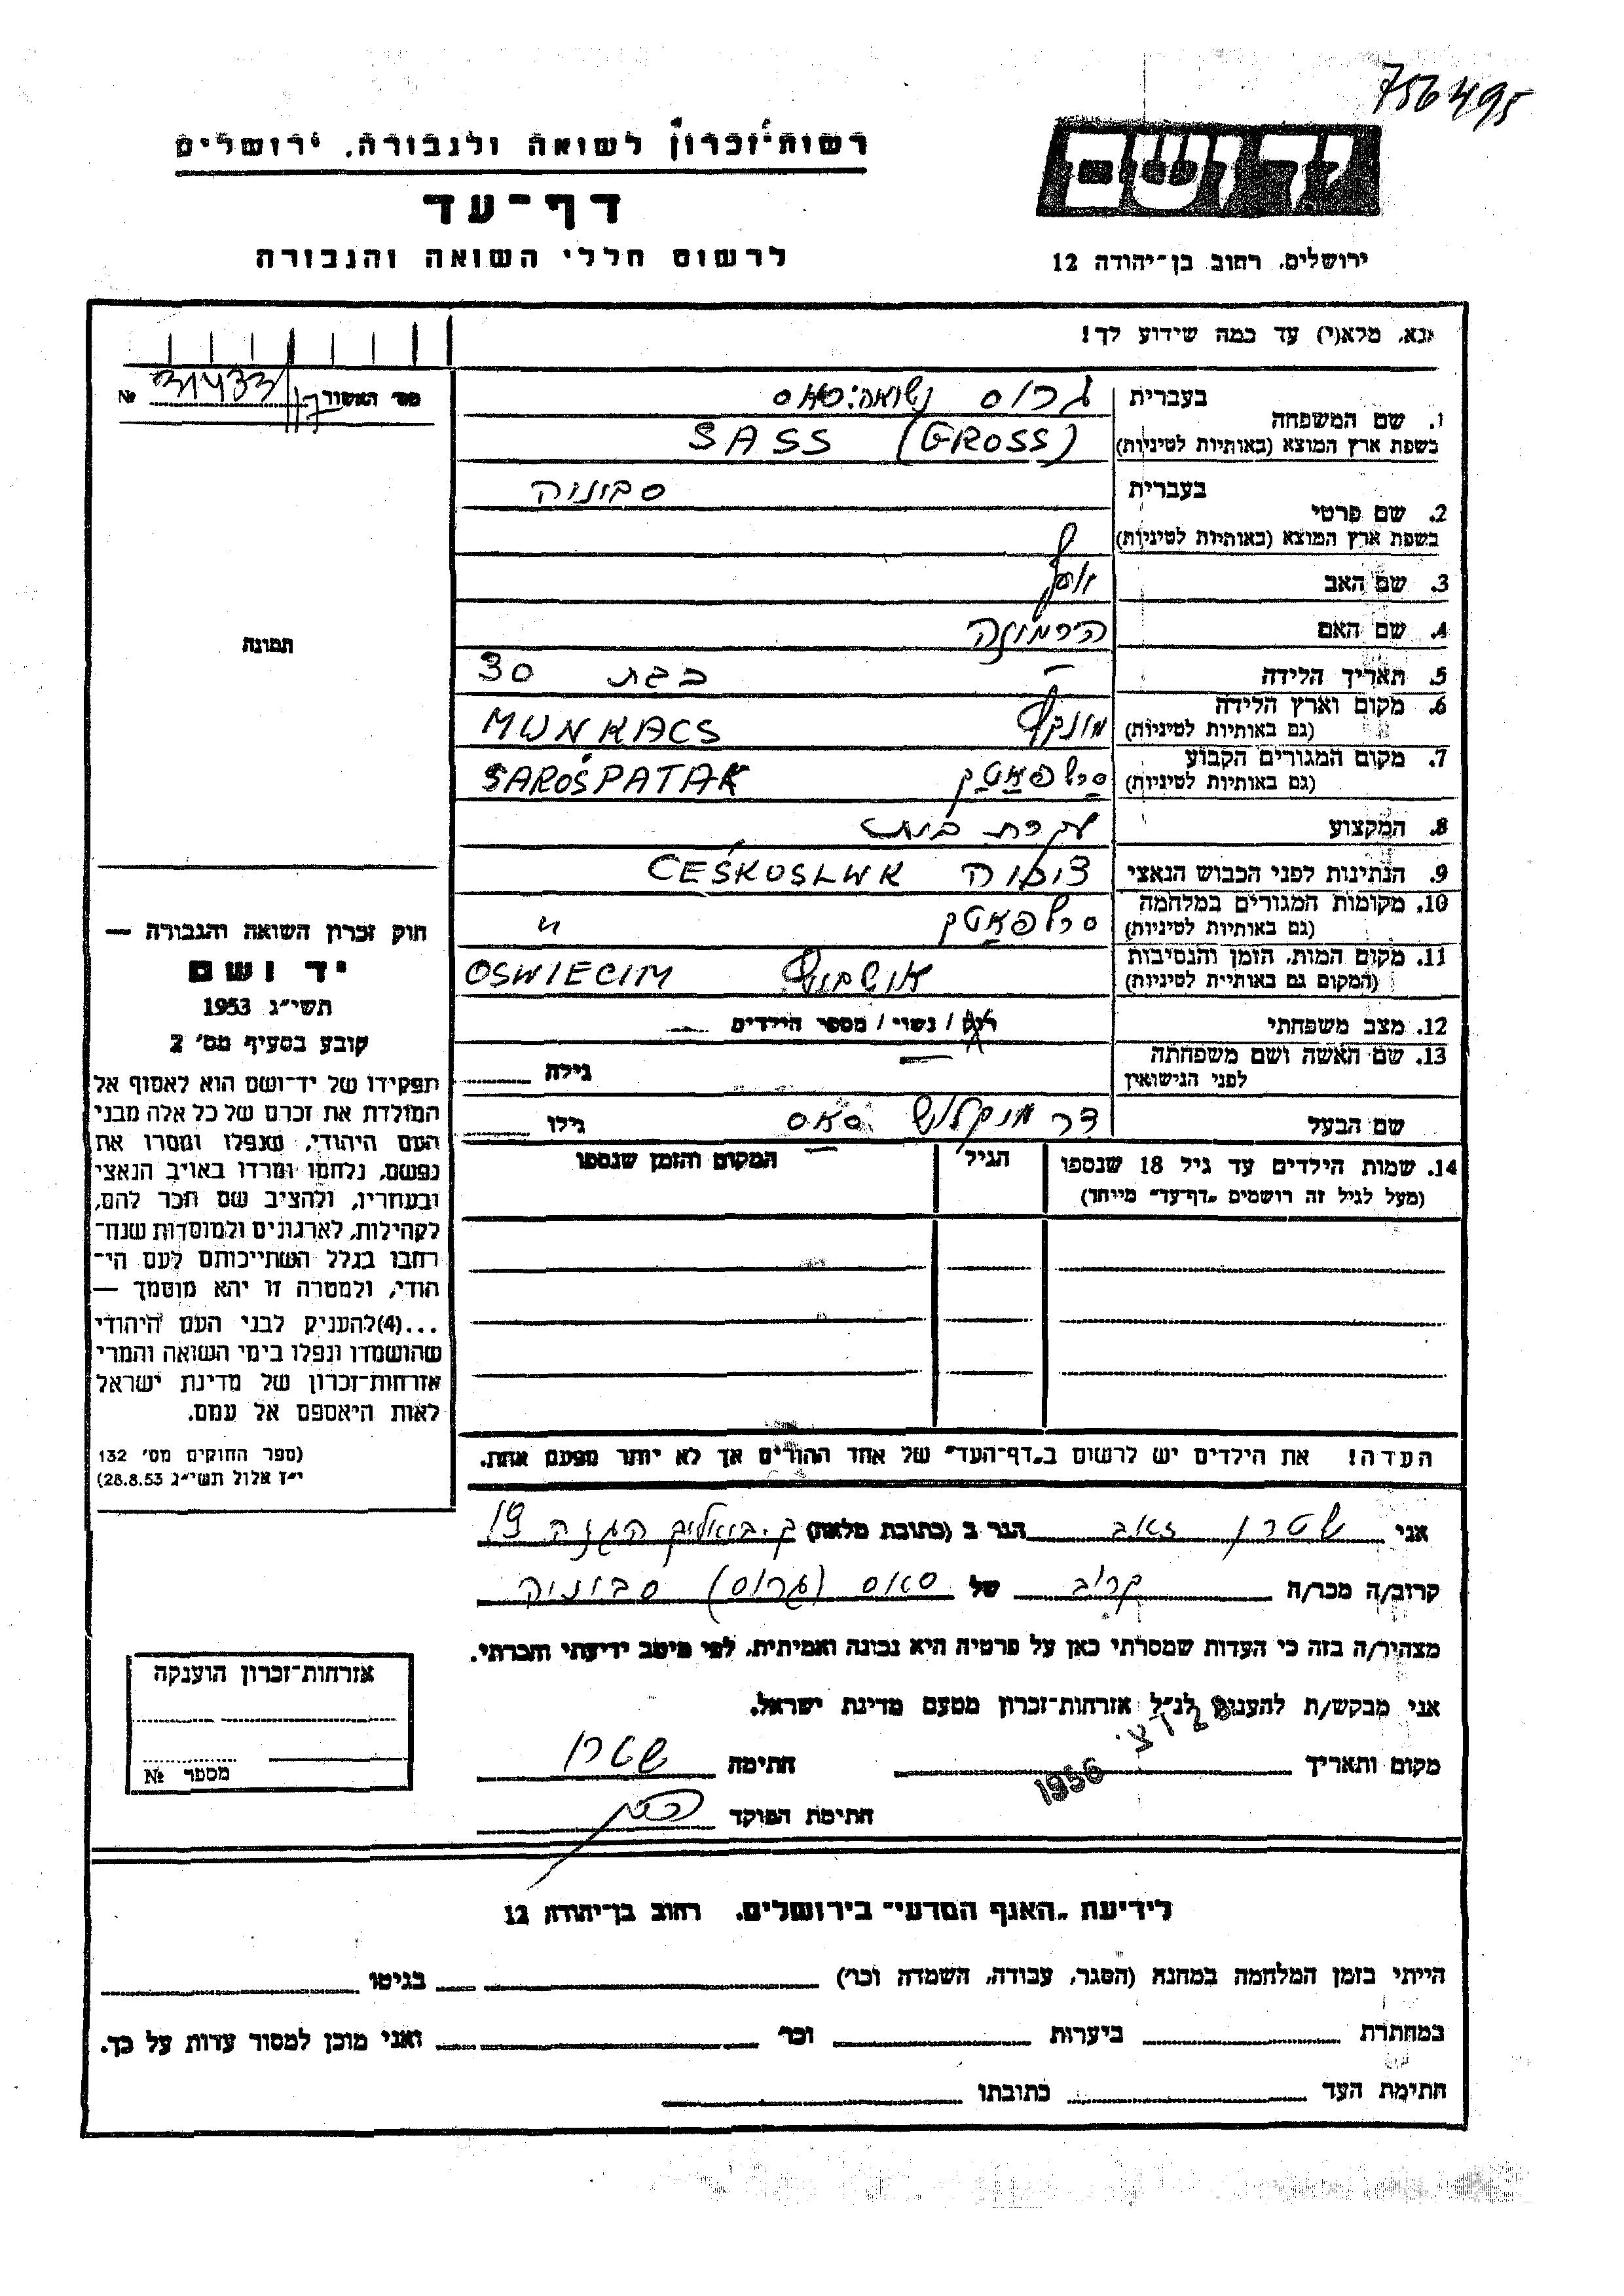 756495
רשות־זכרון לשואה ולגבורה, ירושלים
יד ושם
דף־עד
לרשום חללי השואה והגבורה
ירושלים, רחוב בן־יהודה 12
נא, מלא(י) עד כמה שידוע לך!
מס׳ האשור № 31433
1. שם המשפחה
בעברית גרוס נשואה: סאס
בשפת ארץ המוצא (באותיות לטיניות) SASS (GROSS)
2. שם פרטי
בעברית סבונוה
בשפת ארץ המוצא (באותיות לטיניות)
3. שם האב יוסף
4. שם האם הרמונה
5. תאריך הלידה – כבת 30
6. מקום וארץ הלידה
(גם באותיות לטיניות) מונקץ׳ MUNKACS
7. מקום המגורים הקבוע
(גם באותיות לטיניות) סרשפאטק SAROSPATAK
8. המקצוע עקרת בית
9. הנתינות לפני הכבוש הנאצי CESKOSLWK
10. מקומות המגורים במלחמה
(גם באותיות לטיניות) סרשפאטק "
11. מקום המות, הזמן והנסיבות
(המקום גם באותיית לטיניות) אושביץ OSWIECIM
12. מצב משפחתי רוק / נשוי / מספר הילדים —
13. שם האשה ושם משפחתה
לפני הנישואין — גילה
שם הבעל דר מיקלוש סאס גילו
14. שמות הילדים עד גיל 18 שנספו
(מעל לגיל זה רושמים „דף־עד" מיוחד)
הגיל
המקום והזמן שנספו
הערה! את הילדים יש לרשום ב„דף־העד" של אחד ההורים אך לא יותר מפעם אחת.
תמונה
חוק זכרון השואה והגבורה —
יד ושם
תשי״ג 1953
קובע בסעיף מס׳ 2
תפקידו של יד־ושם הוא לאסוף אל
המולדת את זכרם של כל אלה מבני
העם היהודי, שנפלו ומסרו את
נפשם, נלחמו ומרדו באויב הנאצי
ובעוזריו, ולהציב שם וזכר להם,
לקהילות, לארגונים ולמוסדות שנח־
רבו בגלל השתייכותם לעם הי־
הודי, ולמטרה זו יהא מוסמך —
...(4) להעניק לבני העם היהודי
שהושמדו ונפלו בימי השואה והמרי
אזרחות־זכרון של מדינת ישראל
לאות היאספם אל עמם.
(ספר החוקים מס׳ 132
י״ז אלול תשי״ג 28.8.53)
אני שטרן זאב הגר ב (כתובת מלאה) ק. ביאליק הגנה 19
קרוב/ה מכר/ה קרוב של סאס (גרוס) סבוניה
מצהיר/ה בזה כי העדות שמסרתי כאן על פרטיה היא נכונה ואמיתית, לפי מיטב ידיעתי והכרתי.
אני מבקש/ת להעניק לנ״ל אזרחות־זכרון מטעם מדינת ישראל.
מקום ותאריך 1956 חתימה שטרן
חתימת הפוקד
אזרחות־זכרון הוענקה
מספר №
לידיעת „האגף המדעי" בירושלים, רחוב בן־יהודה 12
הייתי בזמן המלחמה במחנה (הסגר, עבודה, השמדה וכו׳) בגיטו
במחתרת ביערות וכו׳ ואני מוכן למסור עדות על כך.
חתימת העד כתובתו